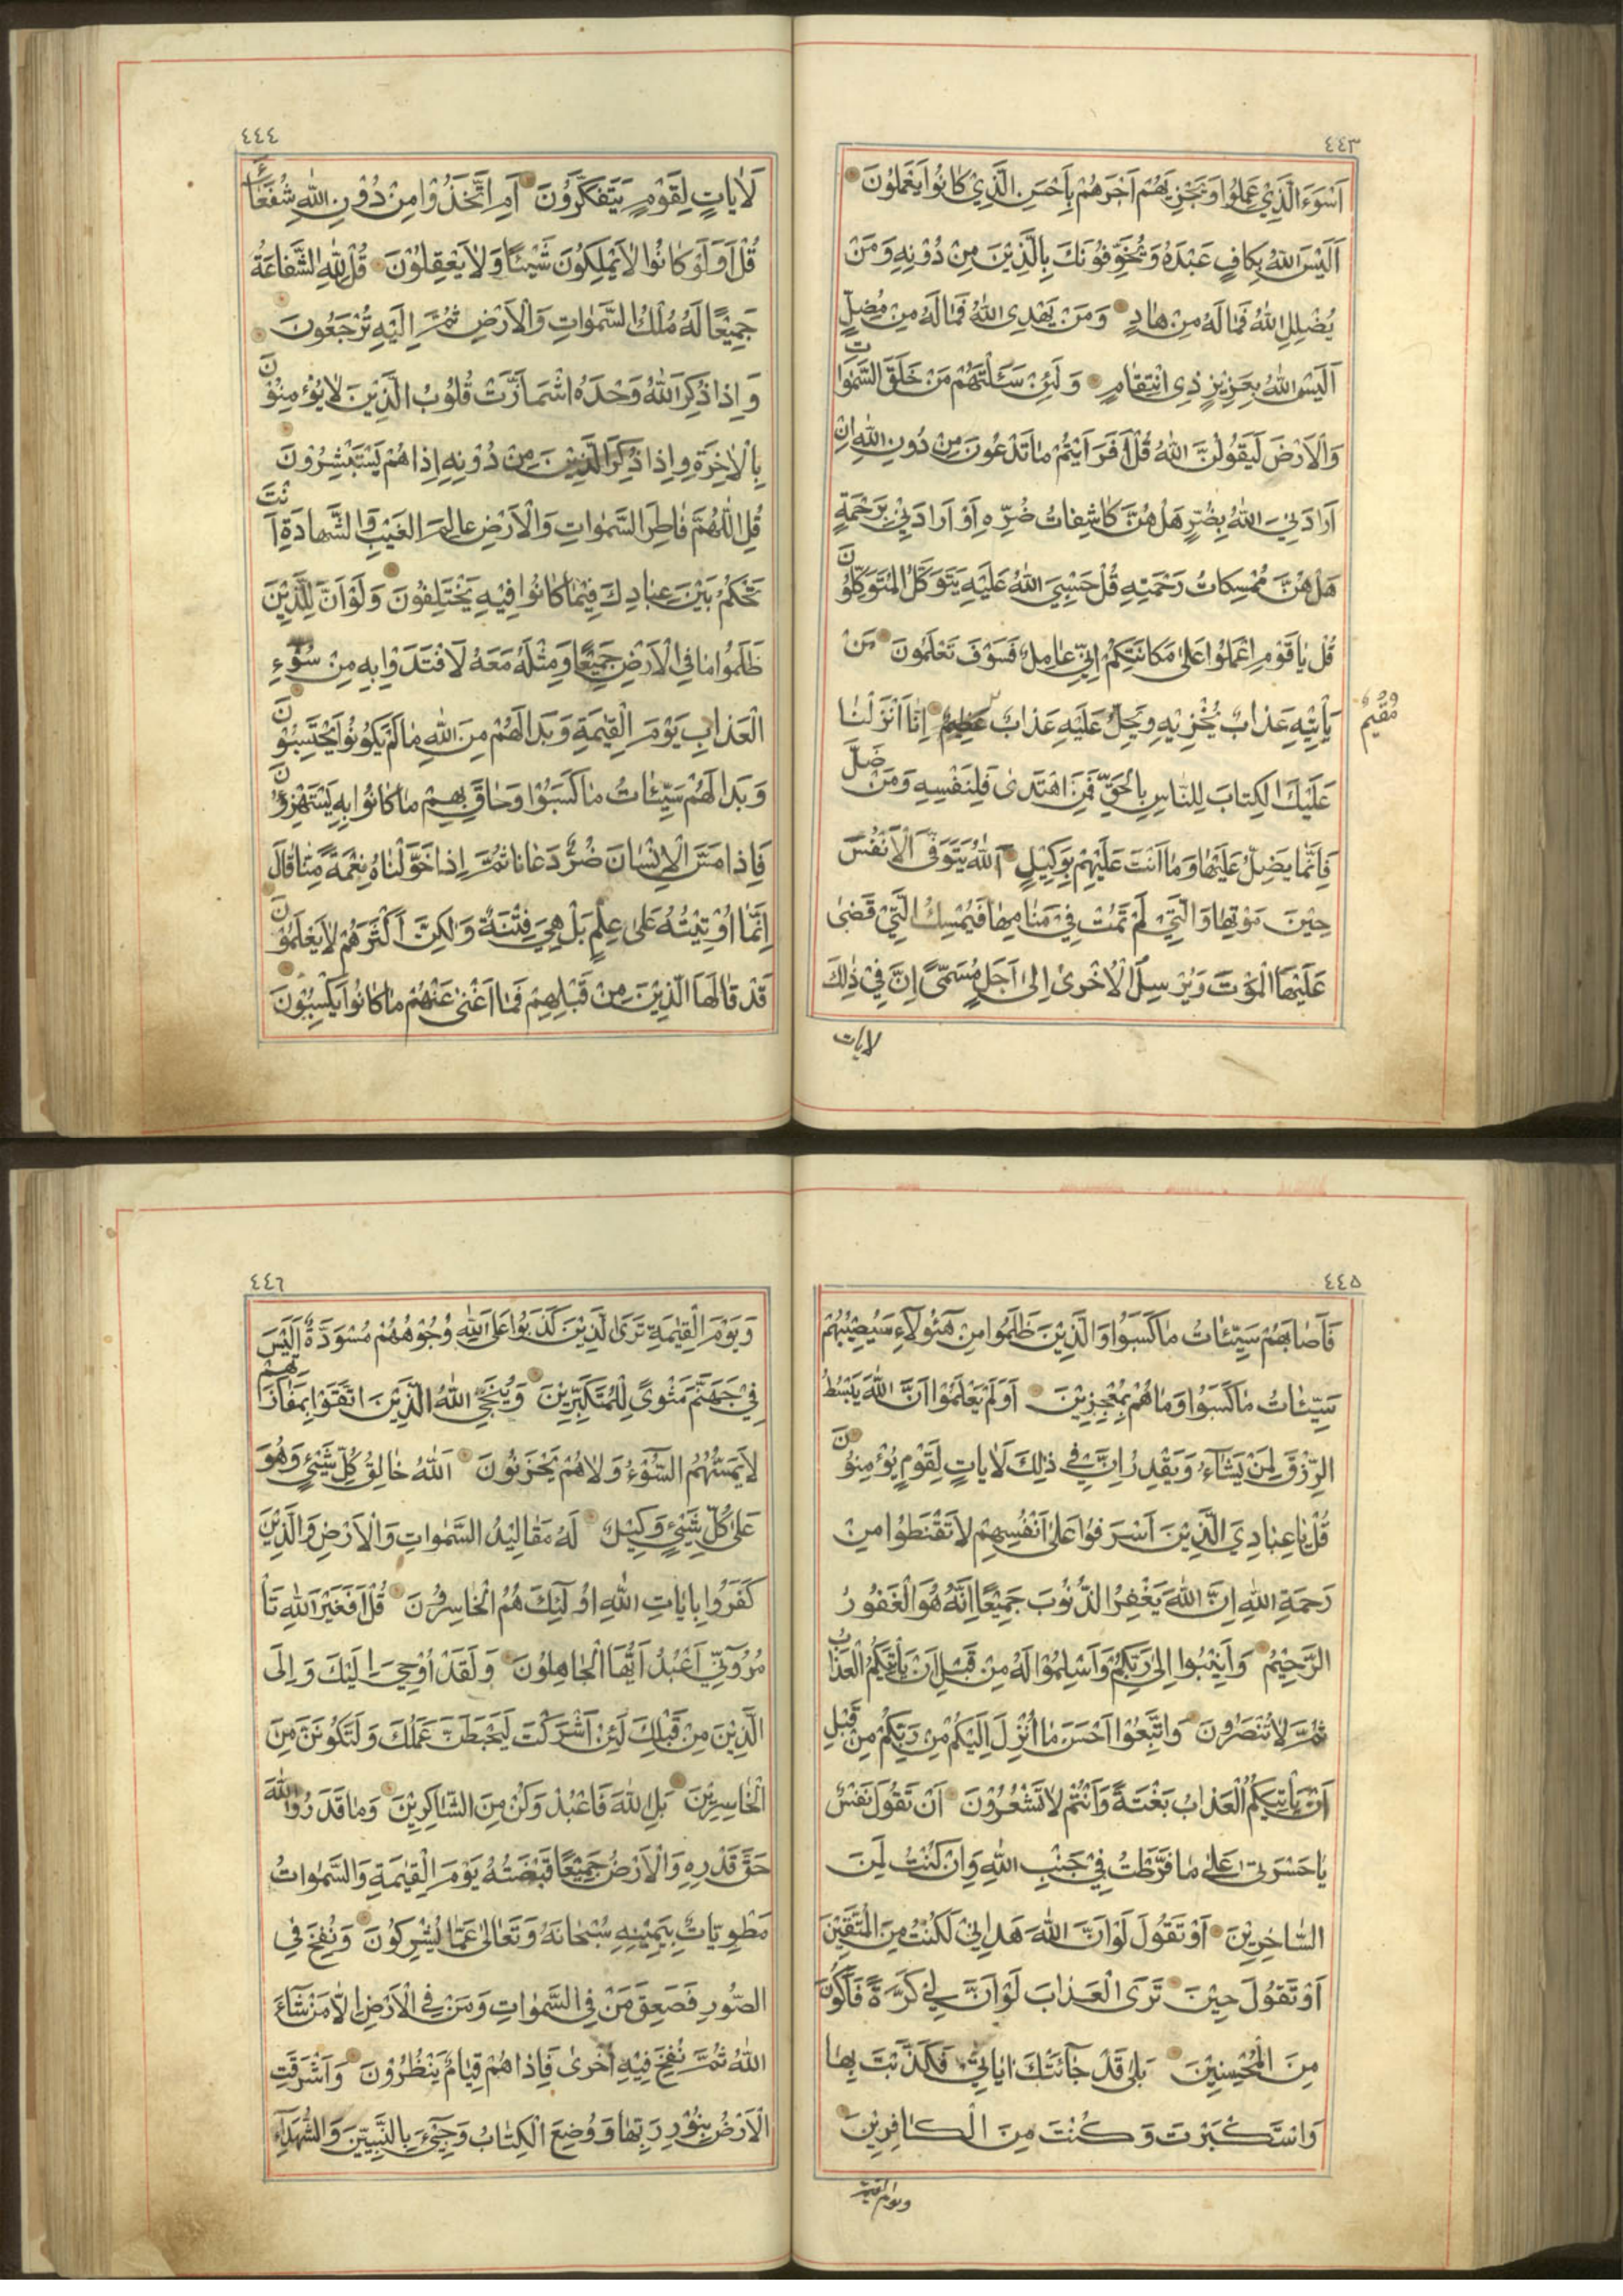 ٤٤٣
اَسْوَءَ الَّذِيْ عَمِلُوا وَيَجْزِيَهُمْ اَجْرَهُمْ بِاَحْسَنِ الَّذِيْ كَانُوا يَعْمَلُونَ
اَلَيْسَ اللّٰهُ بِكَافٍ عَبْدَهُ وَيُخَوِّفُوْنَكَ بِالَّذِيْنَ مِنْ دُوْنِهِ وَمَنْ
يُضْلِلِ اللّٰهُ فَمَا لَهُ مِنْ هَادٍ وَمَنْ يَهْدِى اللّٰهُ فَمَا لَهُ مِنْ مُضِلٍّ
اَلَيْسَ اللّٰهُ بِعَزِيْزٍ ذِى انْتِقَامٍ وَلَئِنْ سَئَلْتَهُمْ مَنْ خَلَقَ السَّمٰوَاتِ
وَالْاَرْضَ لَيَقُولُنَّ اللّٰهُ قُلْ اَفَرَاَيْتُمْ مَا تَدْعُونَ مِنْ دُونِ اللّٰهِ اِنْ
اَرَادَنِيَ اللّٰهُ بِضُرٍّ هَلْ هُنَّ كَاشِفَاتُ ضُرِّهِ اَوْ اَرَادَنِيْ بِرَحْمَةٍ
هَلْ هُنَّ مُمْسِكَاتُ رَحْمَتِهِ قُلْ حَسْبِيَ اللّٰهُ عَلَيْهِ يَتَوَكَّلُ الْمُتَوَكِّلُونَ
قُلْ يَا قَوْمِ اعْمَلُوا عَلٰى مَكَانَتِكُمْ اِنِّي عَامِلٌ فَسَوْفَ تَعْلَمُونَ مَنْ
يَأْتِيْهِ عَذَابٌ يُخْزِيْهِ وَيَحِلُّ عَلَيْهِ عَذَابٌ عَظِيمٌ اِنَّا اَنْزَلْنَا
مُقِيمٌ
عَلَيْكَ الْكِتَابَ لِلنَّاسِ بِالْحَقِّ فَمَنِ اهْتَدٰى فَلِنَفْسِهِ وَمَنْ ضَلَّ
فَاِنَّمَا يَضِلُّ عَلَيْهَا وَمَا اَنْتَ عَلَيْهِمْ بِوَكِيْلٍ اَللّٰهُ يَتَوَفَّى الْاَنْفُسَ
حِيْنَ مَوْتِهَا وَالَّتِيْ لَمْ تَمُتْ فِيْ مَنَامِهَا فَيُمْسِكُ الَّتِيْ قَضٰى
عَلَيْهَا الْمَوْتَ وَيُرْسِلُ الْاُخْرٰى اِلٰى اَجَلٍ مُسَمًّى اِنَّ فِيْ ذٰلِكَ
لايات
٤٤٤
لَاٰيَاتٍ لِقَوْمٍ يَتَفَكَّرُوْنَ اَمِ اتَّخَذُوْا مِنْ دُوْنِ اللّٰهِ شُفَعَاءَ
قُلْ اَوَلَوْ كَانُوا لَا يَمْلِكُونَ شَيْئًا وَلَا يَعْقِلُوْنَ قُلْ لِلّٰهِ الشَّفَاعَةُ
جَمِيْعًا لَهُ مُلْكُ السَّمٰوَاتِ وَالْاَرْضِ ثُمَّ اِلَيْهِ تُرْجَعُونَ
وَاِذَا ذُكِرَ اللّٰهُ وَحْدَهُ اشْمَاَزَّتْ قُلُوْبُ الَّذِيْنَ لَا يُؤْمِنُوْنَ
بِالْاٰخِرَةِ وَاِذَا ذُكِرَ الَّذِيْنَ مِنْ دُوْنِهِ اِذَا هُمْ يَسْتَبْشِرُوْنَ
قُلِ اللّٰهُمَّ فَاطِرَ السَّمٰوَاتِ وَالْاَرْضِ عَالِمَ الْغَيْبِ وَالشَّهَادَةِ اَنْتَ
تَحْكُمُ بَيْنَ عِبَادِكَ فِيْمَا كَانُوا فِيْهِ يَخْتَلِفُوْنَ وَلَوْ اَنَّ لِلَّذِيْنَ
ظَلَمُوا مَا فِي الْاَرْضِ جَمِيْعًا وَمِثْلَهُ مَعَهُ لَافْتَدَوْا بِهِ مِنْ سُوْءِ
الْعَذَابِ يَوْمَ الْقِيٰمَةِ وَبَدَا لَهُمْ مِنَ اللّٰهِ مَا لَمْ يَكُونُوا يَحْتَسِبُوْنَ
وَبَدَا لَهُمْ سَيِّئَاتُ مَا كَسَبُوْا وَحَاقَ بِهِمْ مَا كَانُوا بِهِ يَسْتَهْزِؤُنَ
فَاِذَا مَسَّ الْاِنْسَانَ ضُرٌّ دَعَانَا ثُمَّ اِذَا خَوَّلْنَاهُ نِعْمَةً مِنَّا قَالَ
اِنَّمَا اُوْتِيْتُهُ عَلٰى عِلْمٍ بَلْ هِيَ فِتْنَةٌ وَلٰكِنَّ اَكْثَرَهُمْ لَا يَعْلَمُوْنَ
قَدْ قَالَهَا الَّذِيْنَ مِنْ قَبْلِهِمْ فَمَا اَغْنٰى عَنْهُمْ مَا كَانُوا يَكْسِبُوْنَ
٤٤٥
فَاَصَابَهُمْ سَيِّئَاتُ مَا كَسَبُوْا وَالَّذِيْنَ ظَلَمُوا مِنْ هٰؤُلَاءِ سَيُصِيْبُهُمْ
سَيِّئَاتُ مَا كَسَبُوْا وَمَا هُمْ بِمُعْجِزِيْنَ اَوَلَمْ يَعْلَمُوْا اَنَّ اللّٰهَ يَبْسُطُ
الرِّزْقَ لِمَنْ يَشَآءُ وَيَقْدِرُ اِنَّ فِي ذٰلِكَ لَاٰيَاتٍ لِقَوْمٍ يُؤْمِنُوْنَ
قُلْ يَا عِبَادِيَ الَّذِيْنَ اَسْرَفُوْا عَلٰى اَنْفُسِهِمْ لَا تَقْنَطُوْا مِنْ
رَحْمَةِ اللّٰهِ اِنَّ اللّٰهَ يَغْفِرُ الذُّنُوْبَ جَمِيْعًا اِنَّهُ هُوَ الْغَفُوْرُ
الرَّحِيْمُ وَاَنِيْبُوا اِلٰى رَبِّكُمْ وَاَسْلِمُوْا لَهُ مِنْ قَبْلِ اَنْ يَأْتِيَكُمُ الْعَذَابُ
ثُمَّ لَا تُنْصَرُوْنَ وَاتَّبِعُوْا اَحْسَنَ مَا اُنْزِلَ اِلَيْكُمْ مِنْ رَبِّكُمْ مِنْ قَبْلِ
اَنْ يَأْتِيَكُمُ الْعَذَابُ بَغْتَةً وَاَنْتُمْ لَا تَشْعُرُوْنَ اَنْ تَقُوْلَ نَفْسٌ
يَا حَسْرَتٰى عَلٰى مَا فَرَّطْتُ فِيْ جَنْبِ اللّٰهِ وَاِنْ كُنْتُ لَمِنَ
السَّاخِرِيْنَ اَوْ تَقُوْلَ لَوْ اَنَّ اللّٰهَ هَدٰانِيْ لَكُنْتُ مِنَ الْمُتَّقِيْنَ
اَوْ تَقُوْلَ حِيْنَ تَرَى الْعَذَابَ لَوْ اَنَّ لِيْ كَرَّةً فَاَكُوْنَ
مِنَ الْمُحْسِنِيْنَ بَلٰى قَدْ جَآئَتْكَ اٰيَاتِيْ فَكَذَّبْتَ بِهَا
وَاسْتَكْبَرْتَ وَكُنْتَ مِنَ الْكَافِرِيْنَ
ويوم القيمة
٤٤٦
وَيَوْمَ الْقِيٰمَةِ تَرَى الَّذِيْنَ كَذَبُوْا عَلَى اللّٰهِ وُجُوْهُهُمْ مُسْوَدَّةٌ اَلَيْسَ
فِيْ جَهَنَّمَ مَثْوًى لِلْمُتَكَبِّرِيْنَ وَيُنَجِّي اللّٰهُ الَّذِيْنَ اتَّقَوْا بِمَفَازَتِهِمْ
لَا يَمَسُّهُمُ السُّوْءُ وَلَا هُمْ يَحْزَنُوْنَ اَللّٰهُ خَالِقُ كُلِّ شَيْئٍ وَهُوَ
عَلٰى كُلِّ شَيْئٍ وَكِيْلٌ لَهُ مَقَالِيْدُ السَّمٰوَاتِ وَالْاَرْضِ وَالَّذِيْنَ
كَفَرُوا بِاٰيَاتِ اللّٰهِ اُوْلٰٓئِكَ هُمُ الْخَاسِرُوْنَ قُلْ اَفَغَيْرَ اللّٰهِ تَأْ
مُرُوْٓنِّي اَعْبُدُ اَيُّهَا الْجَاهِلُوْنَ وَلَقَدْ اُوْحِيَ اِلَيْكَ وَاِلَى
الَّذِيْنَ مِنْ قَبْلِكَ لَئِنْ اَشْرَكْتَ لَيَحْبَطَنَّ عَمَلُكَ وَلَتَكُوْنَنَّ مِنَ
الْخَاسِرِيْنَ بَلِ اللّٰهَ فَاعْبُدْ وَكُنْ مِنَ الشَّاكِرِيْنَ وَمَا قَدَرُوا اللّٰهَ
حَقَّ قَدْرِهِ وَالْاَرْضُ جَمِيْعًا قَبْضَتُهُ يَوْمَ الْقِيٰمَةِ وَالسَّمٰوَاتُ
مَطْوِيَّاتٌ بِيَمِيْنِهِ سُبْحَانَهُ وَتَعَالٰى عَمَّا يُشْرِكُوْنَ وَنُفِخَ فِي
الصُّوْرِ فَصَعِقَ مَنْ فِي السَّمٰوَاتِ وَمَنْ فِي الْاَرْضِ اِلَّا مَنْ شَآءَ
اللّٰهُ ثُمَّ نُفِخَ فِيْهِ اُخْرٰى فَاِذَا هُمْ قِيَامٌ يَنْظُرُوْنَ وَاَشْرَقَتِ
الْاَرْضُ بِنُوْرِ رَبِّهَا وَوُضِعَ الْكِتَابُ وَجِيْءَ بِالنَّبِيِّيْنَ وَالشُّهَدَآءِ